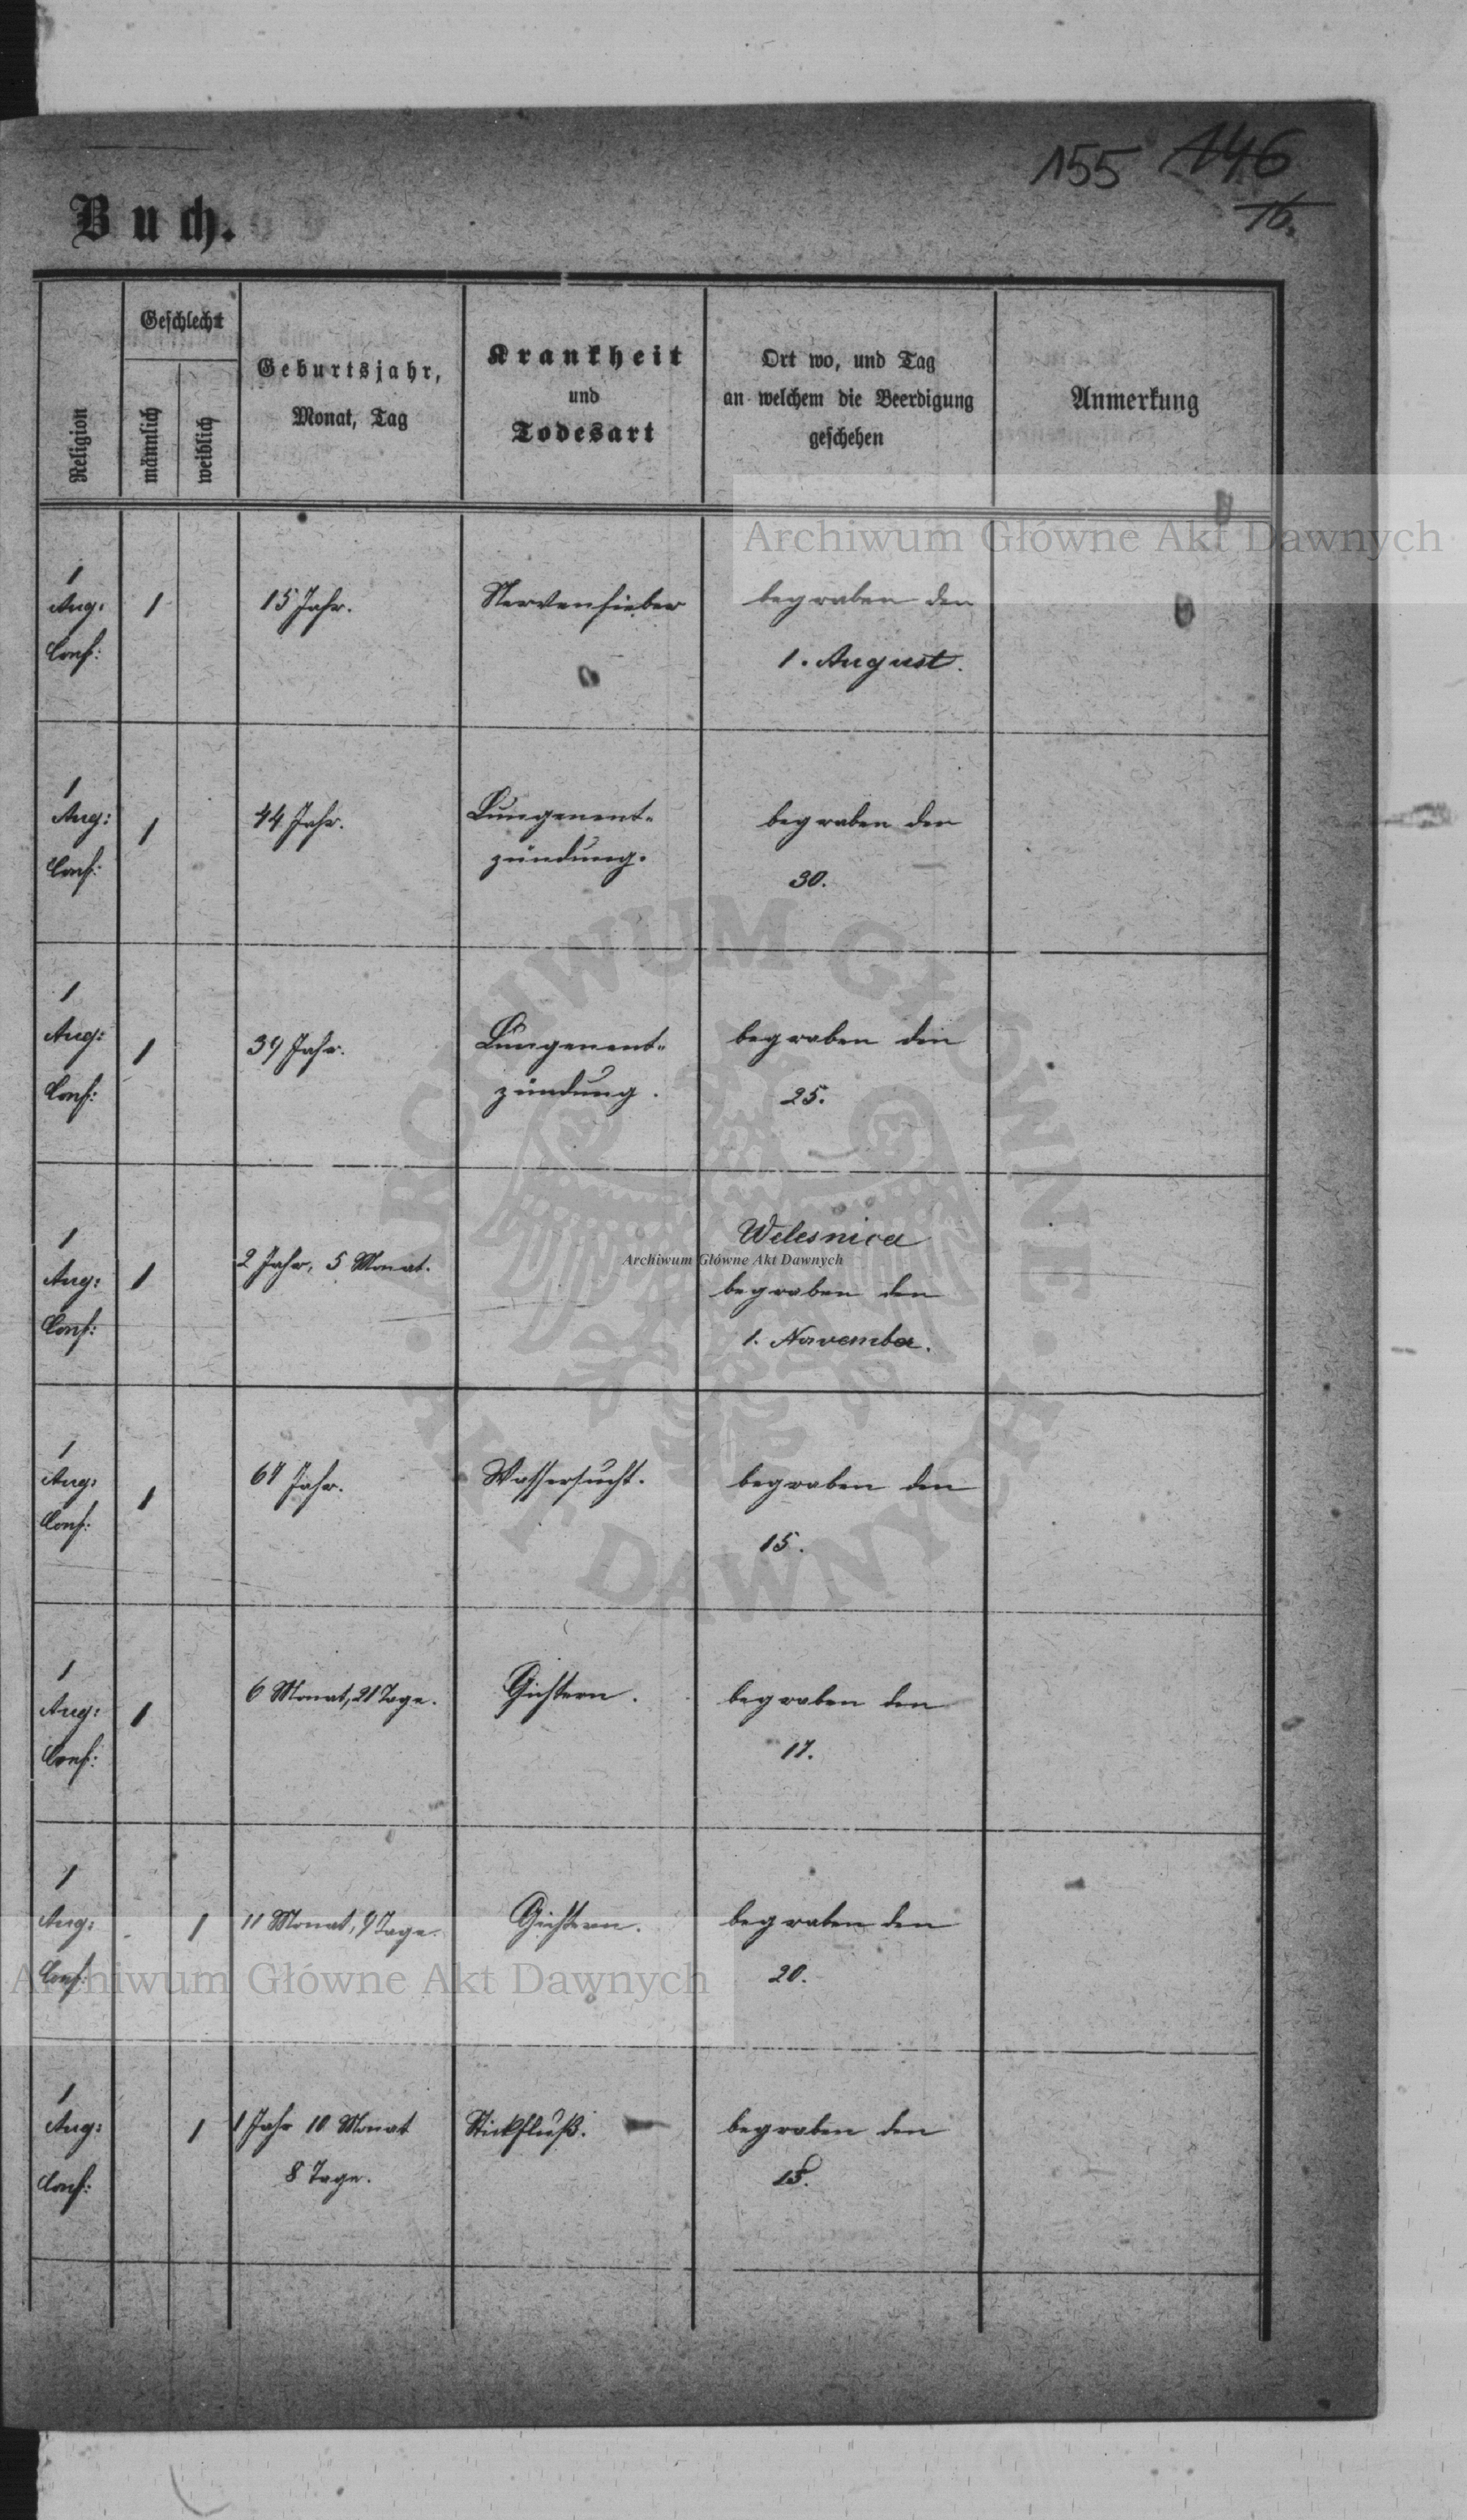 155 146
16.
Buch.
Religion
Geschlecht
männlich
weiblich
Geburtsjahr,
Monat, Tag
Krankheit
und
Todesart
Ort wo, und Tag
an welchem die Beerdigung
geschehen
Anmerkung
Archiwum Główne Akt Dawnych
1
Aug:
Conf:
1
15 Jahr.
Nervenfieber
begraben den
1. August.
1
Aug:
Conf:
1
44 Jahr.
Lungenent-
zündung.
begraben den
30.
1
Aug:
Conf:
1
39 Jahr.
Lungenent-
zündung.
begraben den
25.
1
Aug:
Conf:
1
2 Jahr, 5 Monat.
Welesnica
Archiwum Główne Akt Dawnych
begraben den
1. November.
1
Aug:
Conf:
1
Jahr.
Wassersucht.
begraben den
15.
1
Aug:
Conf:
1
6 Monat, 21 Tage.
Gichtern.
begraben den
17.
1
Aug:
Conf:
1
11 Monat, 9 Tage.
Gichtern.
begraben den
20.
Archiwum Główne Akt Dawnych
1
Aug:
Conf:
1
1 Jahr 10 Monat
8 Tage.
Stickfluß.
begraben den
15.
ARCHIWUM GŁÓWNE AKT DAWNYCH